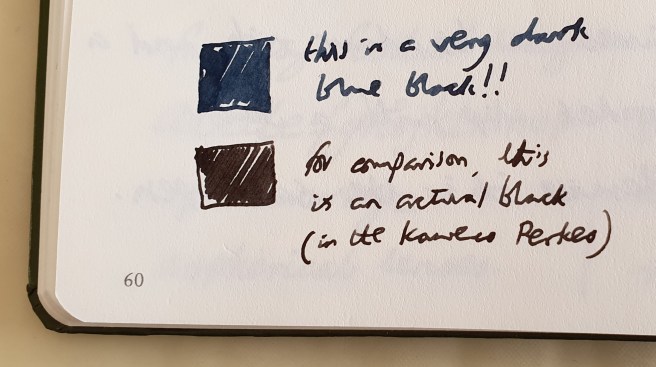 this is a very dark
blue black!!
for comparison, this
is an actual black
(in the Kaweco Perkeo)
60